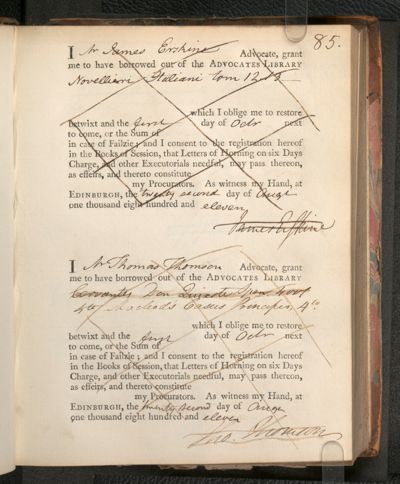 85.
I Mr James Erskine Advocate, grant
me to have borrowed out of the ADVOCATES LIBRARY
Novellieri Italiani tom 12
which I oblige me to restore
betwixt and the first day of Octr next
to come, or the Sum of
in case of Failzie; and I consent to the registration hereof
in the Books of Session, that Letters of Horning on six Days
Charge, and other Executorials needful, may pass thereon,
as effeirs, and thereto constitute
my Procurators. As witness my Hand, at
EDINBURGH, the twenty second day of Augt
one thousand eight hundred and eleven
James Erskine
I Mr Thomas Thomson Advocate, grant
me to have borrowed out of the ADVOCATES LIBRARY
Cervantes Don Quixote
4to Macleod's Casus Principis, 4to
which I oblige me to restore
betwixt and the first day of Octr next
to come, or the Sum of
in case of Failzie; and I consent to the registration hereof
in the Books of Session, that Letters of Horning on six Days
Charge, and other Executorials needful, may pass thereon,
as effeirs, and thereto constitute
my Procurators. As witness my Hand, at
EDINBURGH, the twenty second day of Augt
one thousand eight hundred and eleven
Tho. Thomson